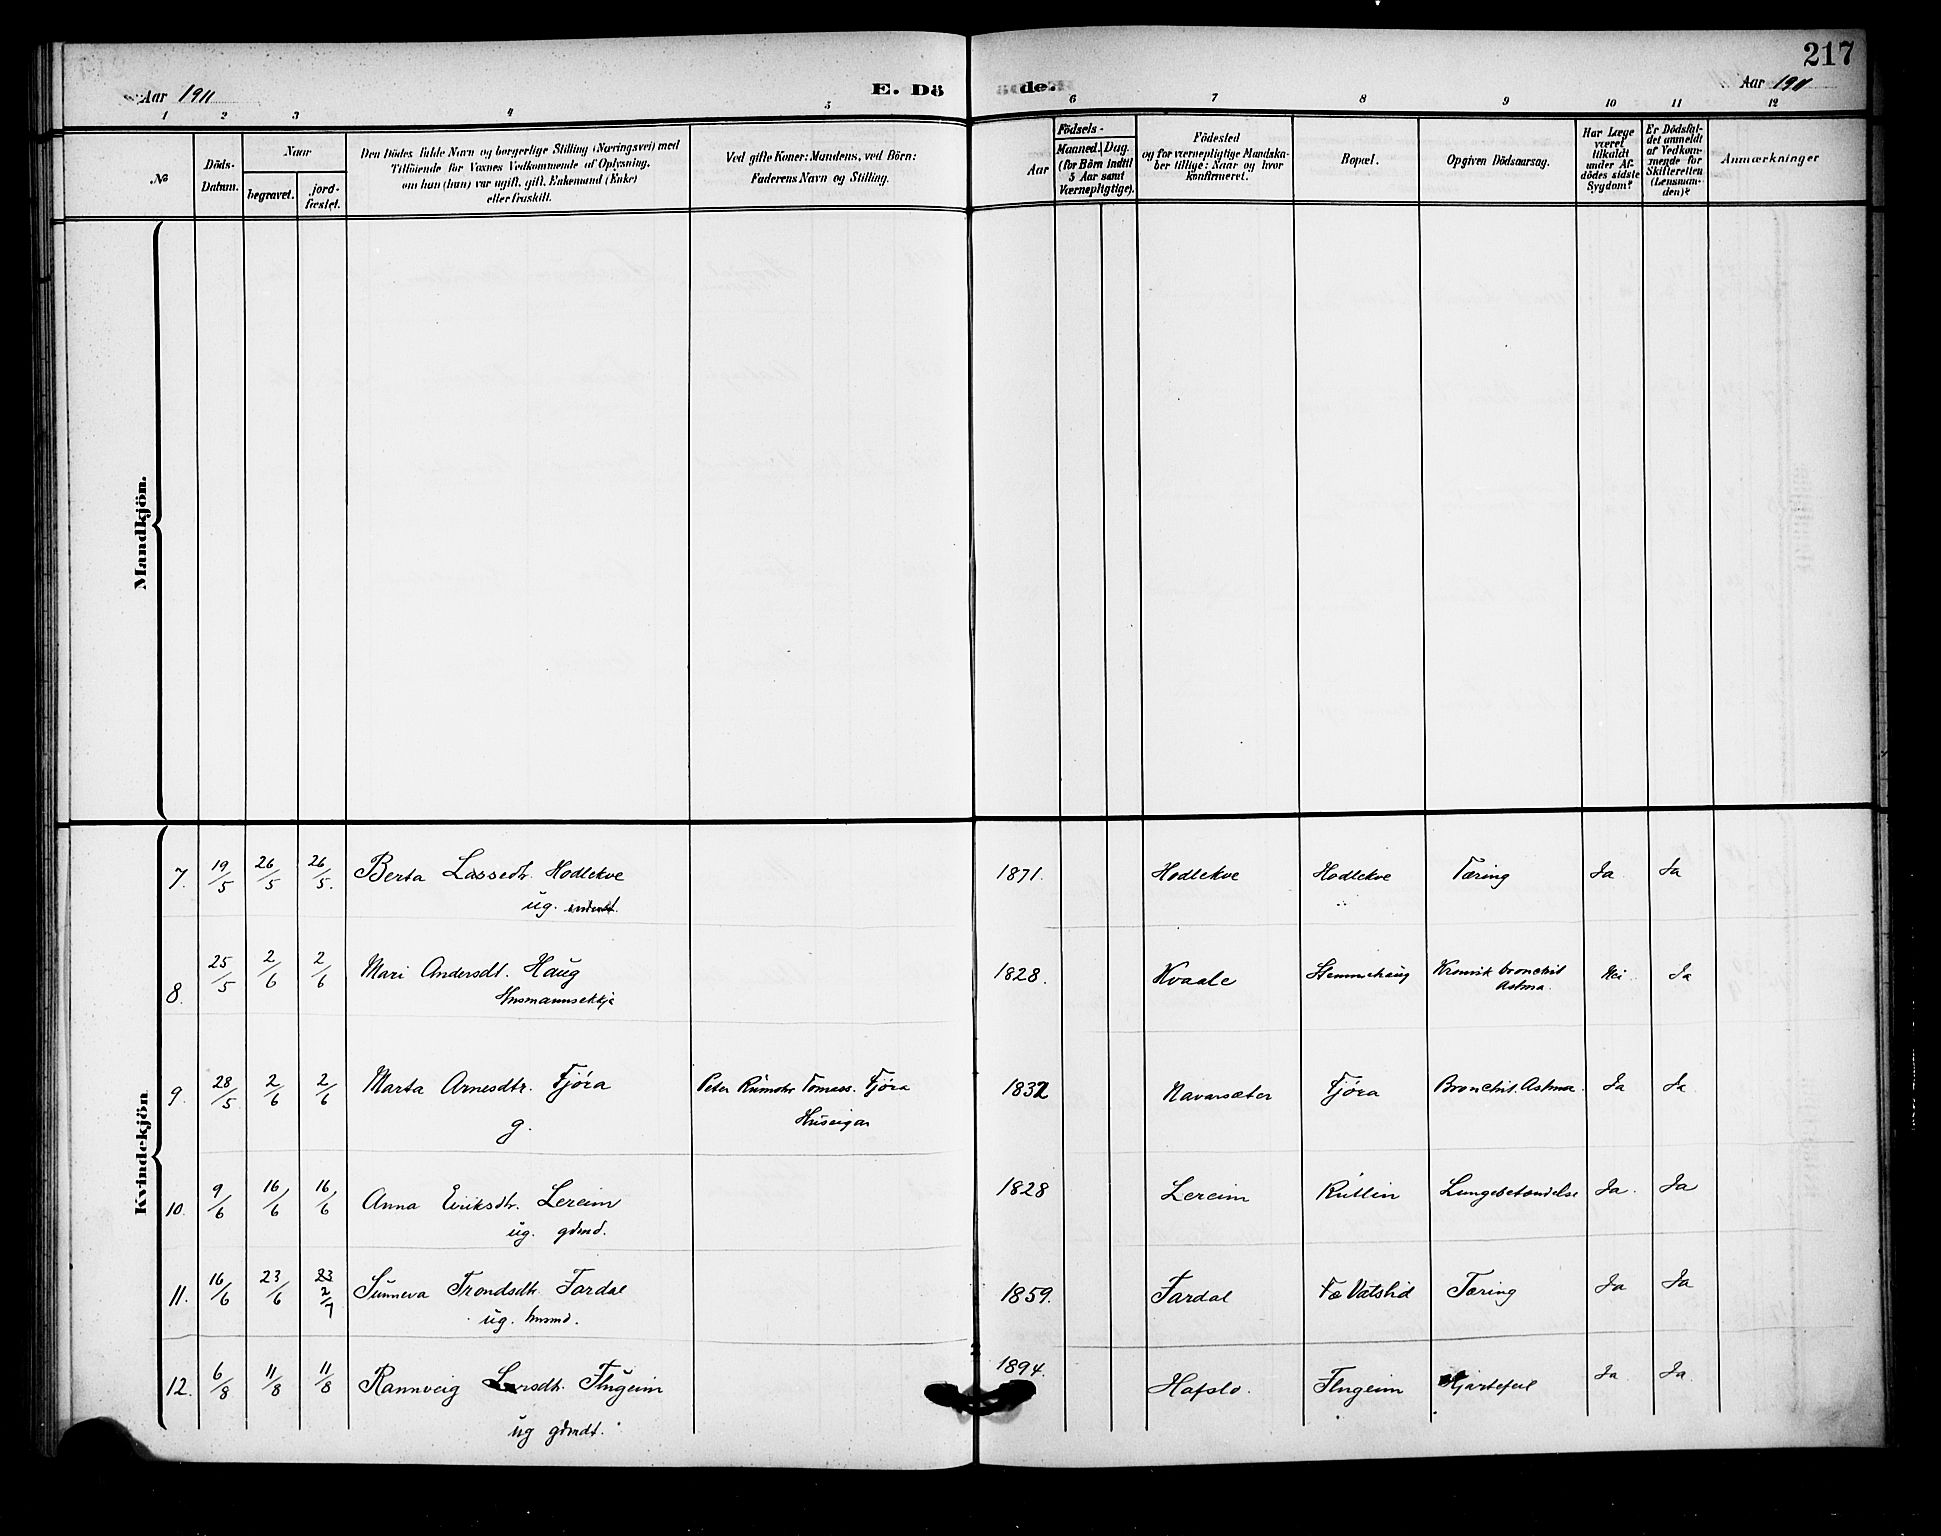 217
Aar 1911
E. Döde.
Aar 1911
1 2 3 4 5 6 7 8 9 10 11 12
№
Döds-
Datum.
Naar
begravet.
jord-
fæstet.
Den Dödes fulde Navn og borgerlige Stilling (Næringsvei) med
Tilföiende for Voxnes Vedkommende af Oplysning,
om han (hun) var ugift, gift, Enkemand (Enke)
eller fraskilt.
Ved gifte Koner: Mandens, ved Börn:
Faderens Navn og Stilling.
Aar
Födsels-
Maaned. Dag.
(for Börn indtil
5 Aar samt
Værnepligtige).
Födested
og for værnepligtige Mandska-
ber tillige: Naar og hvor
konfirmeret.
Bopæl.
Opgiven Dödsaarsag.
Har Læge
været
tilkaldt
under Af-
dödes sidste
Sygdom?
Er Dödsfal-
det anmeldt
af Vedkom-
mende for
Skifteretten
(Lensman-
den)?
Anmærkninger
Mandkjön.
Kvindekjön
7. 19/5 26/5 26/5. Berta Lassedtr. Hodlekve 1871. Hodlekve Hodlekve Tæring Ja Ja
ug. inderst.
8. 25/5 2/6 2/6 Mari Andersdt. Haug 1828. Kvaale Stemmehaug Kronisk bronchit Nei Ja
Husmannsekkje Astma.
9. 28/5 2/6 2/6 Marta Arnesdtr. Fjóra Peter Rumohr Tomass. Fjóra 1832 Navarsæter Fjóra Bronchit. Astma. Ja Ja
g. Huseigar
10. 9/6 16/6 16/6 Anna Eiriksdtr. Lereim 1828 Lereim Rutlin Lungebetændelse Ja. Ja
ug. gdmd.
11. 16/6 23/6 23 2/7 Sunneva Trondsdtr. Fardal 1859. Fardal Fæ Vatslid Tæring Ja Ja
ug. husmd.
12. 6/8 11/8 11/8 Rannveig Larsdtr. Flugeim 1894. Hafslo. Flugeim Hjartefeil Ja Ja
ug gdmdt.